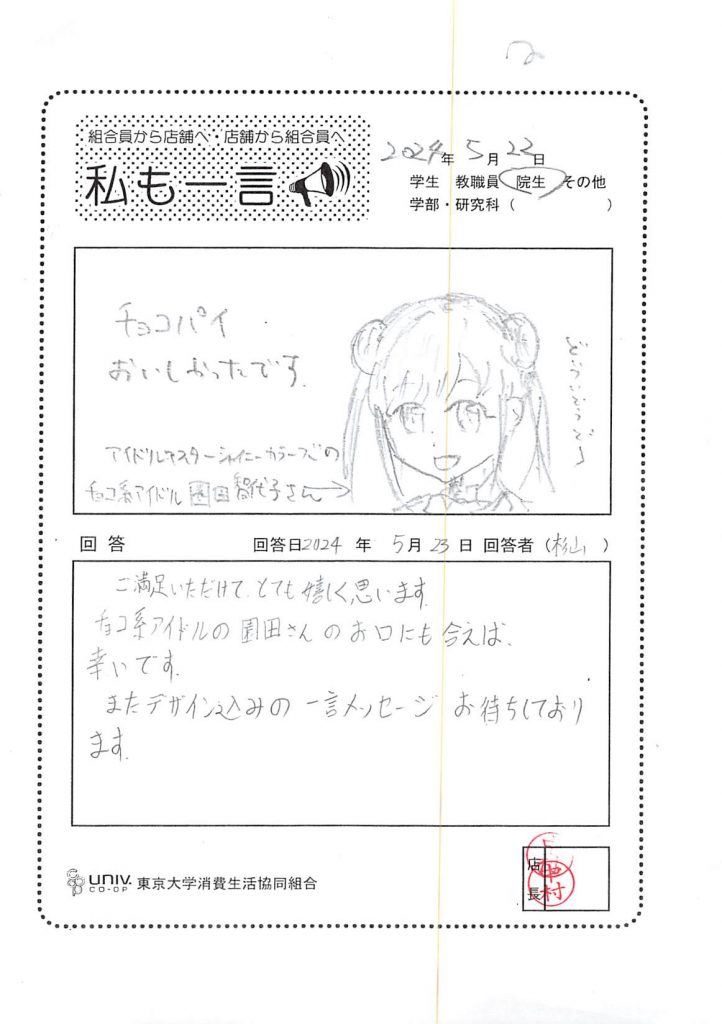 組合員から店舗へ・店舗から組合員へ
私も一言
2024年 5月 22日
学生 教職員 院生 その他
学部・研究科 ( )
チョコパイ
おいしかったです。
アイドルマスターシャイニーカラーズの
チョコ系アイドル 園田智代子さん→
回答 回答日2024 年 5月 23日 回答者 (杉山)
ご満足いただけて、とても嬉しく思います。
チョコ系アイドルの園田さんのお口にも合えば、
幸いです。
またデザイン込みの一言メッセージお待ちしており
ます。
店長
中村
UNIV.
CO-OP
東京大学消費生活協同組合